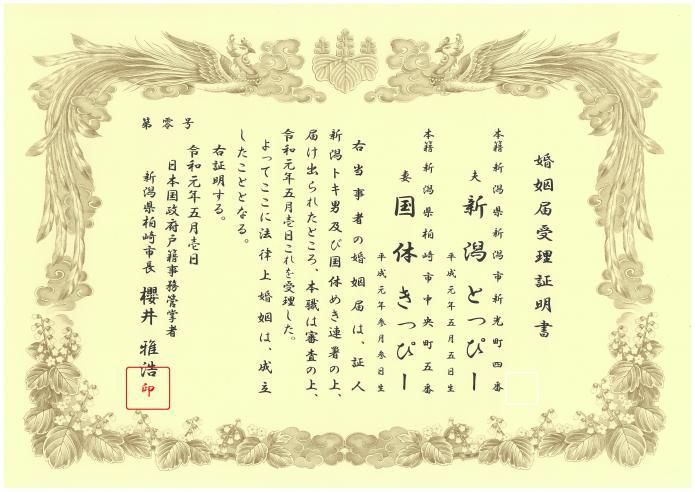 婚姻届受理証明書
本籍 新潟県新潟市新光町四番
夫 新潟とっぴー
平成元年五月五日生
本籍 新潟県柏崎市中央町五番
妻 国休きっぴー
平成元年参月参日生
右当事者の婚姻届は、証人
新潟トキ男及び国休めき連署の上、
届け出られたところ、本職は審査の上、
令和元年五月壱日これを受理した。
よってここに法律上婚姻は、成立
したこととなる。
右証明する。
令和元年五月壱日
日本国政府戸籍事務管掌者
新潟県柏崎市長 櫻井 雅浩
印
第零号